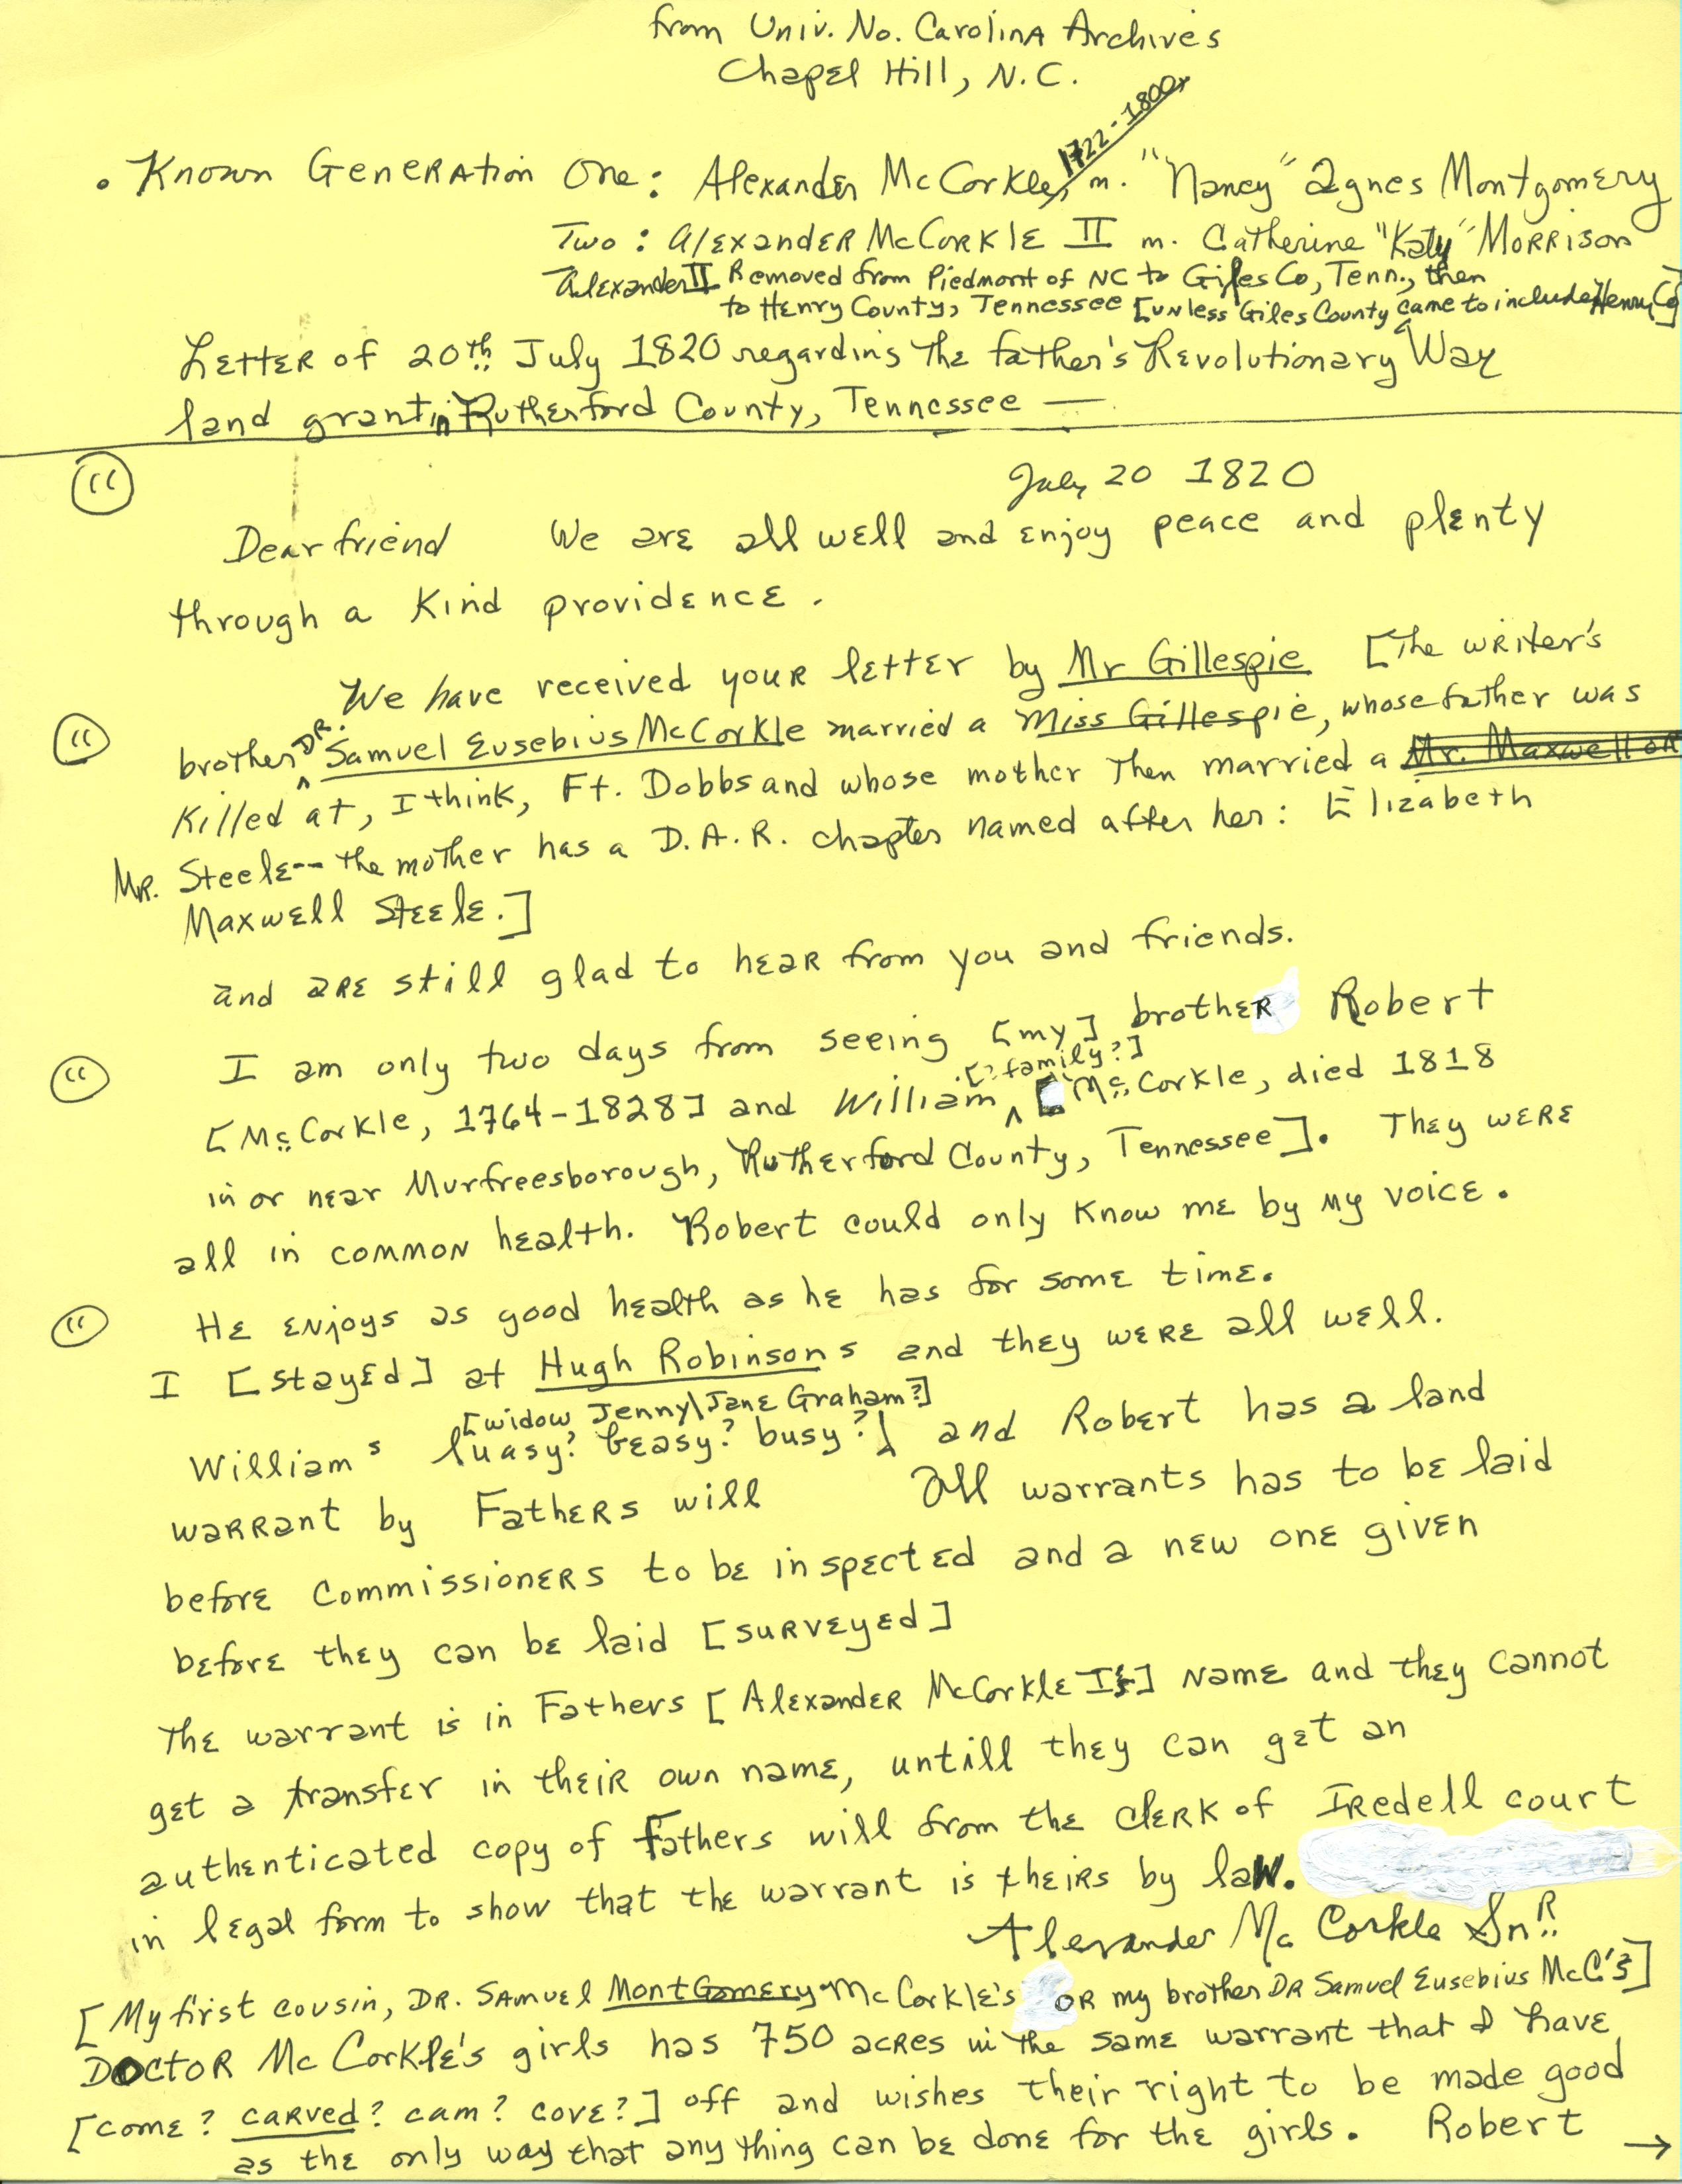 from Univ. No. Carolina Archives
Chapel Hill, N.C.
1722-1800
• Known Generation One: Alexander McCorkle, m. "Nancy" Agnes Montgomery
Two: Alexander McCorkle II m. Catherine "Katy" Morrison
Alexander II Removed from Piedmont of NC to Giles Co, Tenn., then
to Henry County, Tennessee [unless Giles County came to include Henry Co]
Letter of 20th July 1820 regarding the father's Revolutionary War
land grant in Rutherford County, Tennessee —
"
July 20 1820
Dear friend We are all well and enjoy peace and plenty
through a kind providence.
We have received your letter by Mr Gillespie [The writer's
" brother DR. Samuel Eusebius McCorkle married a Miss Gillespie, whose father was
killed at, I think, Ft. Dobbs and whose mother then married a Mr. Maxwell or
Mr. Steele-- the mother has a D.A.R. chapter named after her: Elizabeth
Maxwell Steele.]
and are still glad to hear from you and friends.
" I am only two days from seeing [my] brother Robert
[McCorkle, 1764-1828] and William [? family?] [McCorkle, died 1818
in or near Murfreesborough, Rutherford County, Tennessee]. They were
all in common health. Robert could only know me by my voice.
" He enjoys as good health as he has for some time.
I [stayed] at Hugh Robinsons and they were all well.
[widow, Jenny\Jane Graham?]
Williams luasy? beasy? busy?] and Robert has a land
warrant by Fathers will All warrants has to be laid
before Commissioners to be inspected and a new one given
before they can be laid [surveyed]
The warrant is in Fathers [Alexander McCorkle I's] name and they cannot
get a transfer in their own name, untill they can get an
authenticated copy of Fathers will from the clerk of Iredell court
in legal form to show that the warrant is theirs by law.
Alexander Mc Corkle Snr.
[My first cousin, DR. Samuel Montgomery McCorkle's or my brother DR Samuel Eusebius McC's]
Doctor Mc Corkle's girls has 750 acres in the same warrant that I have
[come? carved? cam? cove?] off and wishes their right to be made good
as the only way that any thing can be done for the girls. Robert →